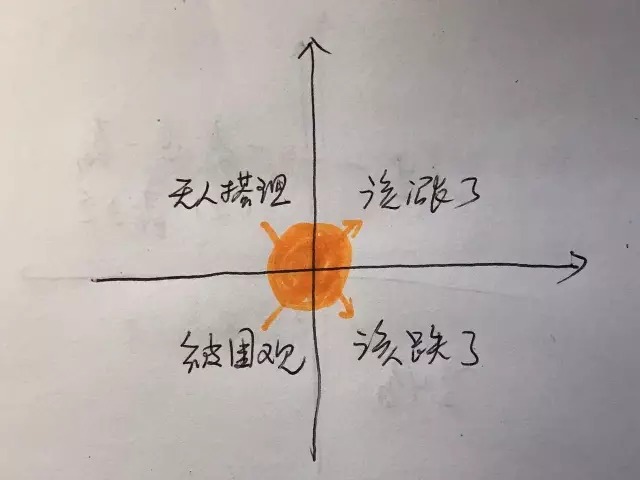 无人搭理
该涨了
被围观
该跌了